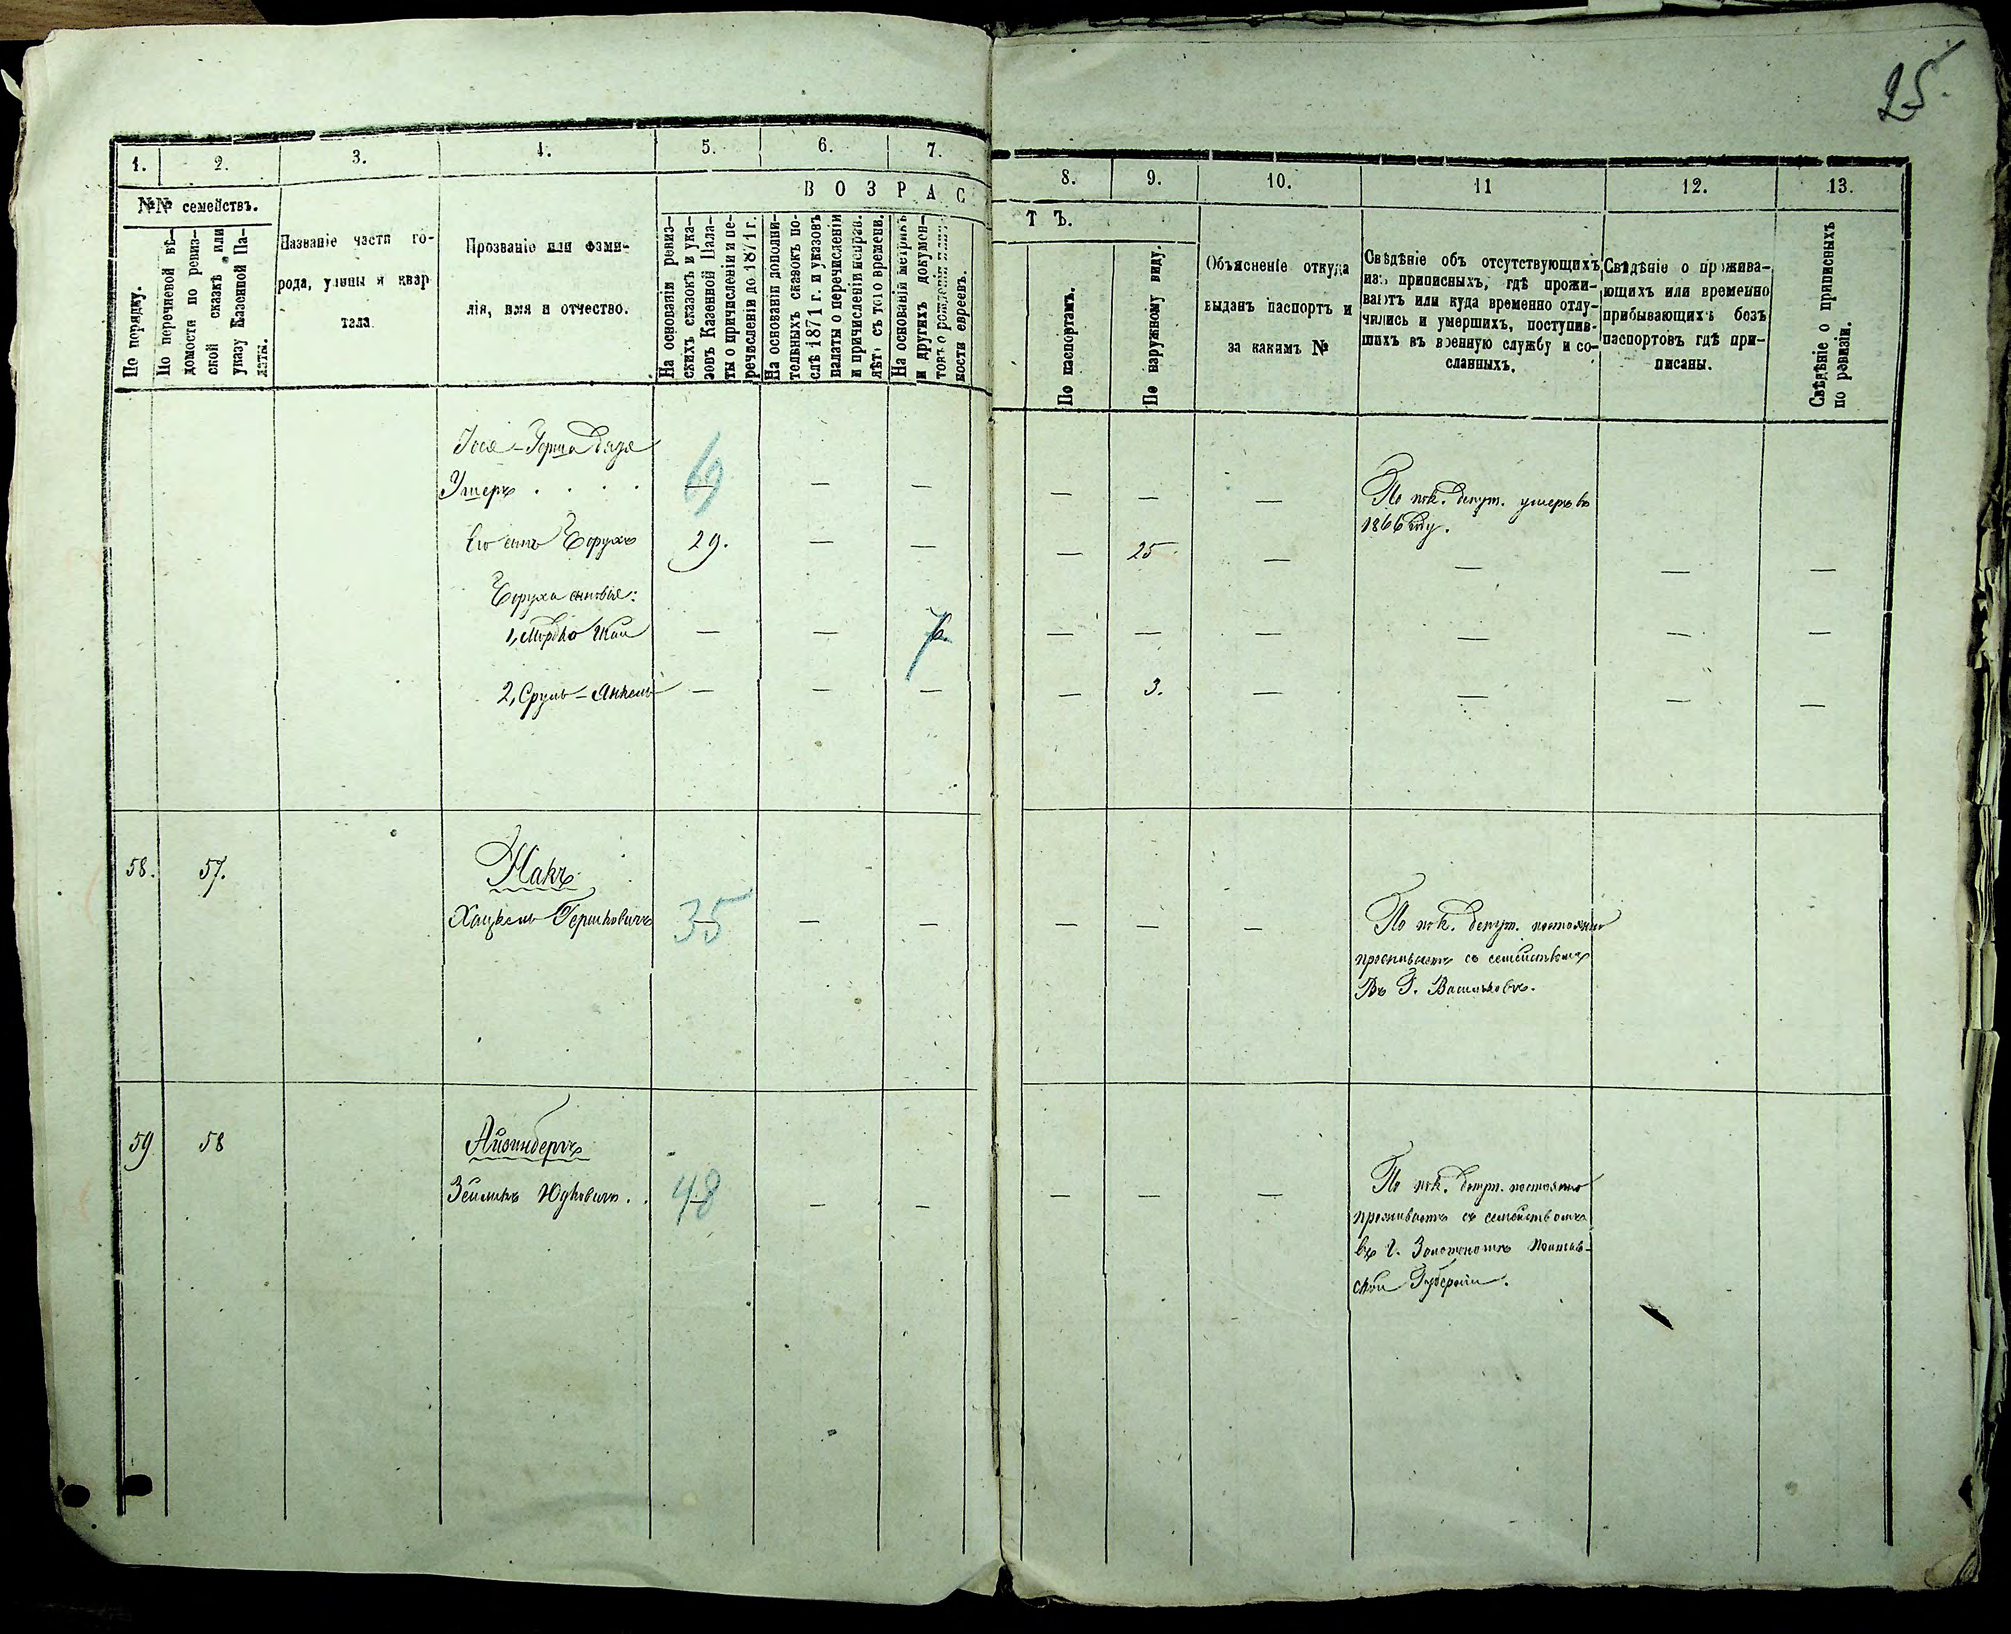 25.
1.
2.
3.
4.
5.
6.
7.
8.
9.
10.
11
12.
13.
№№ семействъ.
ВОЗРАС
ТЪ.
По порядку.
По перечневой вѣ-
домости по ревиз-
ской сказкѣ или
указу Казенной Па-
латы.
Названіе части го-
рода, улицы и квар
тала
Прозваніе или фами-
лія, имя и отчество.
На основаніи ревиз-
скихъ сказокъ и ука-
зовъ Казенной Пала-
ты о причисленіи и пе-
речисленіи до 1871 г.
На основаніи дополни-
тельныхъ сказокъ по-
слѣ 1871 г. и указовъ
палаты о перечисленіи
и причисленіи неправ.
лѣтъ съ того времени.
На основаніи метрикъ
и другихъ докумен-
товъ о рожденіи
ности евреевъ.
По паспортамъ.
По наружному виду.
Объясненіе откуда
выданъ паспортъ и
за какимъ №
Свѣдѣніе объ отсутствующихъ
изъ приписныхъ, гдѣ прожи-
ваютъ или куда временно отлу-
чились и умершихъ, поступив-
шихъ въ военную службу и со-
сланныхъ.
Свѣдѣніе о прожива-
ющихъ или временно
прибывающихъ безъ
паспортовъ гдѣ при-
писаны.
Свѣдѣніе о приписныхъ
по ревизіи.
Дядя
Ушеръ . . . . — 69 — — — — — По пок. депут. умеръ въ
1866 году.
Его сынъ Борухъ 29. — — — 25. — — — —
Боруха сыновья:
1, Мордко — — 7. — — — — — —
2, Сруль-Янкель — — — — 3. — — — —
58. 57. Накъ
Хацкель Гершковичъ 35 — — — — — По пок. депут. постоянно
проживаетъ съ семействомъ
въ Г. Васильковѣ.
59 58 Айзинбергъ
Зейликъ Юдковичъ . . 48 — — — — — По пок. депут. постоянно
проживаетъ съ семействомъ
въ г. Золотоношѣ Полтав-
ской Губерніи.